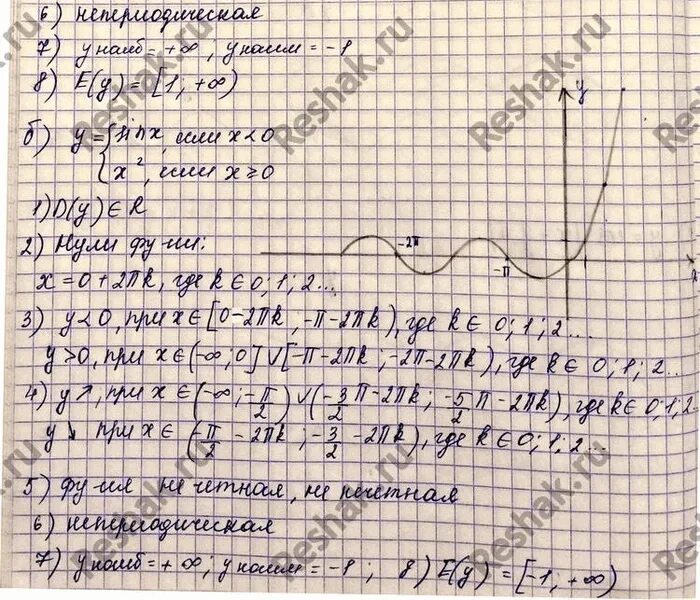 6) непериодическая
7) y наиб = +∞ ; y наим = -1
8) E(y) = [1; +∞)
б) y = { sin x, если x < 0
x², если x ≥ 0
y
1) D(y) ∈ R
2) Нули фу-ии:
x = 0 + 2πk, где k ∈ 0; 1; 2...
-2π
-π
x
3) y < 0, при x ∈ [0 - 2πk; -π - 2πk), где k ∈ 0; 1; 2....
y > 0, при x ∈ (-∞; 0] ∪ [-π - 2πk; -2π - 2πk), где k ∈ 0; 1; 2...
4) y ↗, при x ∈ (-∞; -π/2) ∪ (-3/2 π - 2πk; -5/2 π - 2πk), где k ∈ 0; 1; 2
y ↘ при x ∈ (-π/2 - 2πk; -3/2 - 2πk), где k ∈ 0; 1; 2...
5) фу-ия не четная, не нечетная
6) непериодическая
7) y наиб = +∞; y наим = -1; 8) E(y) = [-1; +∞)
Reshak.ru
Reshak.ru
Reshak.ru
Reshak.ru
Reshak.ru
Reshak.ru